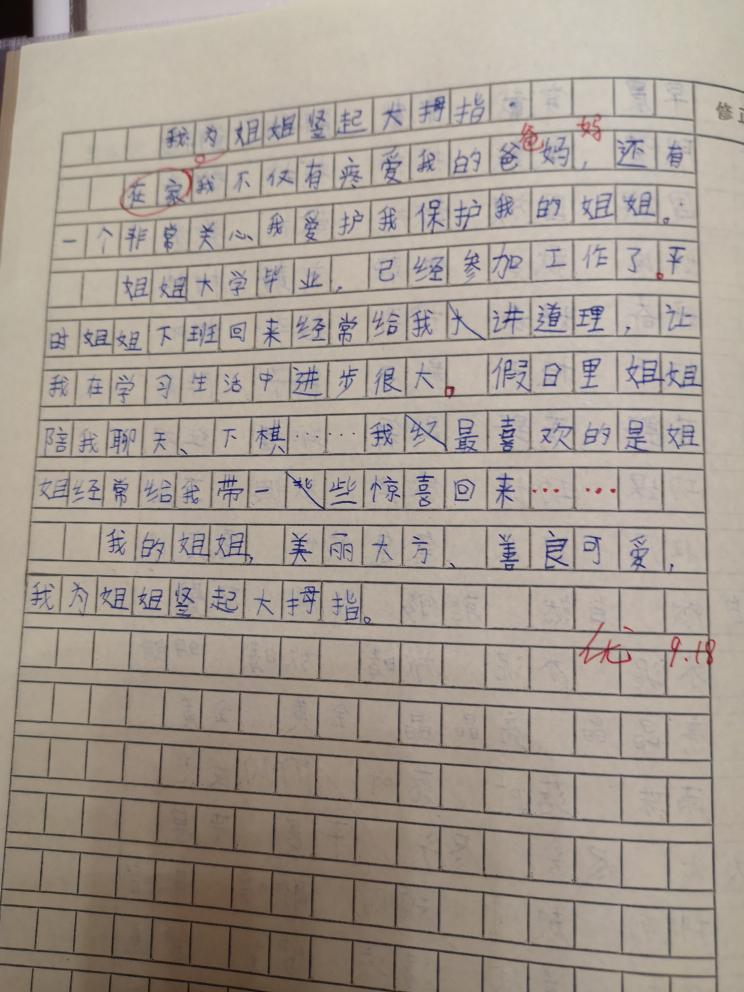 修正
我为姐姐竖起大拇指
爸 妈
在家我不仅有疼爱我的爸妈，还有
一个非常关心我爱护我保护我的姐姐。
姐姐大学毕业，已经参加工作了。平
时姐姐下班回来经常给我大讲道理，让
我在学习生活中进步很大。假日里姐姐
陪我聊天、下棋……我最喜欢的是姐
姐经常给我带一些惊喜回来……
我的姐姐，美丽大方、善良可爱，
我为姐姐竖起大拇指。
优 9.18